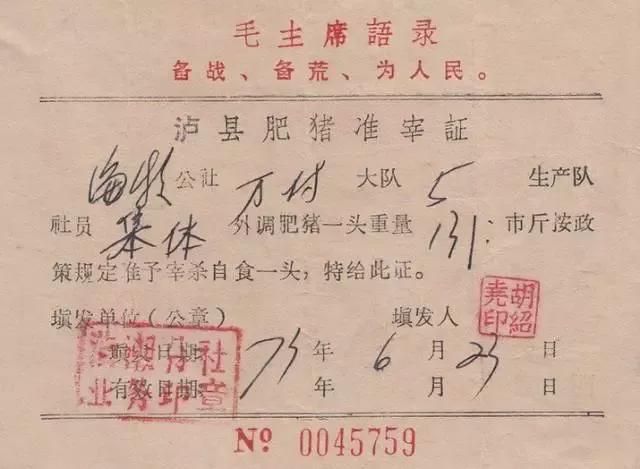 毛主席語录
备战、备荒、为人民。
泸县肥猪准宰証
海 公社 万 大队 5 生产队
社员 集体 外调肥猪一头重量 131 市斤按政
策规定准予宰杀自食一头，特给此证。
填发单位(公章) 填发人 胡紹尧印
填发日期: 75 年 6 月 23 日
有效日期: 年 月 日
业务印章
№ 0045759